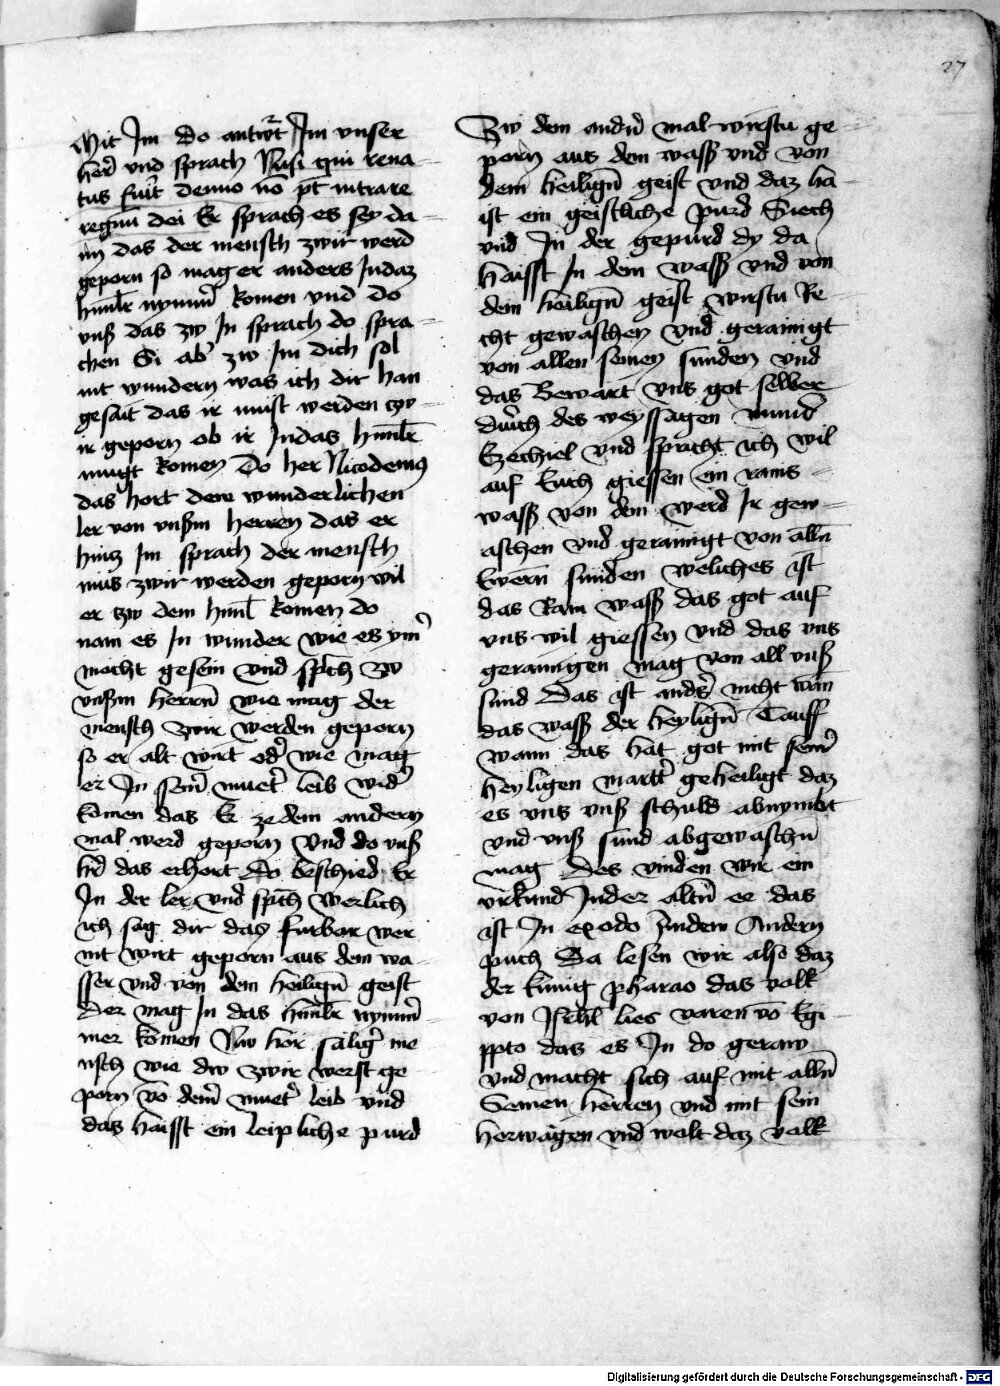 27
Mit Im Do antwt̄ Im vnser
her̄ vnd sprach Nisi qui rena-
tus fuit̄ denuo nō pt̄ intrare
regnū dei Er sprach es sey da-
nn das der mensch zwir werd
geporn so mag er anders Indaz
himlr̄ nymm̄ komen vnd do
vnß das zw In sprach do spra-
chen Si ab̄ zw Im dich sol
nit wundern was ich dir han
gesait das ir must werden zw-
ir geporn ob ir Indas himlr̄
mugt komen Do her Nicodemus
das hort dere wunderlichen
ler von vnßm herren das er
hinz Im sprach der mensch
mus zwir werden geporn wil
er tzw dem himl̄ komen do
nam es In wunder wie es ym̄
mocht gesein vnd spch̄ zw
vnßm herrn̄ wie mag der
mensch zwir werden geporn
so er alt wirt od̄ wie mag
er In sein̄ muet̄ leib wid̄
komen das Er ze dem andern
mal werd geporn Vnd do vnß
her̄ das erhort Do beschied Er
In der ler vnd spch̄ werlich
ich sag dir das furbar wer
nit wirt geporn aus dem wa-
sser vnd von dem heilign̄ geist
Der mag In das himlr̄ nymm̄
mer komen Nw hor säliḡ me
nsch wie dw zwir werst ge
porn vō dein̄ muet̄ leib vnd
das haisst ein leipliche purd
Zw dem andn̄ mal wirstu ge-
porn aus dem wasß vnd von
dem heilign̄ geist vnd daz ha-
ist ein geistliche purd Siech
vnd In der gepurd dy da
haisst In dem wasß vnd von
dem heilign̄ geist wirstu Re
cht gewaschen vnd gerainigt
von allen seinen sunden vnd
das Bewart vns got selber
durch des weyssagen mund
Ezechiel vnd spricht ich wil
auf Euch giessen ein rains
wasß von dem werd Ir gew-
aschen vnd gerainigt von alln̄
Ewern sunden weliches ist
das Rain wasß das got auf
vns wil giessen vnd das vns
gerainigen mag von all vnß
sund Das ist ands̄ nicht wān
das wasß der heylign̄ Tauff
wann das hat got mit sein̄
heyligen martt̄ geheiligt daz
es vns vnß schuld abnymbt
vnd vnß sund abgewaschn̄
mag Des vinden wir ein
vrkund Inder altn̄ ee das
ist In exodo Inden Andern
puch Da lesen wir also daz
der kunig pharao das volk
von Israhl̄ lies varen vō Egi
ppto das es In do geraw
vnd macht sich auf mit alln̄
Seinen herren vnd mit sein
herwägen vnd wolt daz volk
Digitalisierung gefördert durch die Deutsche Forschungsgemeinschaft - DFG